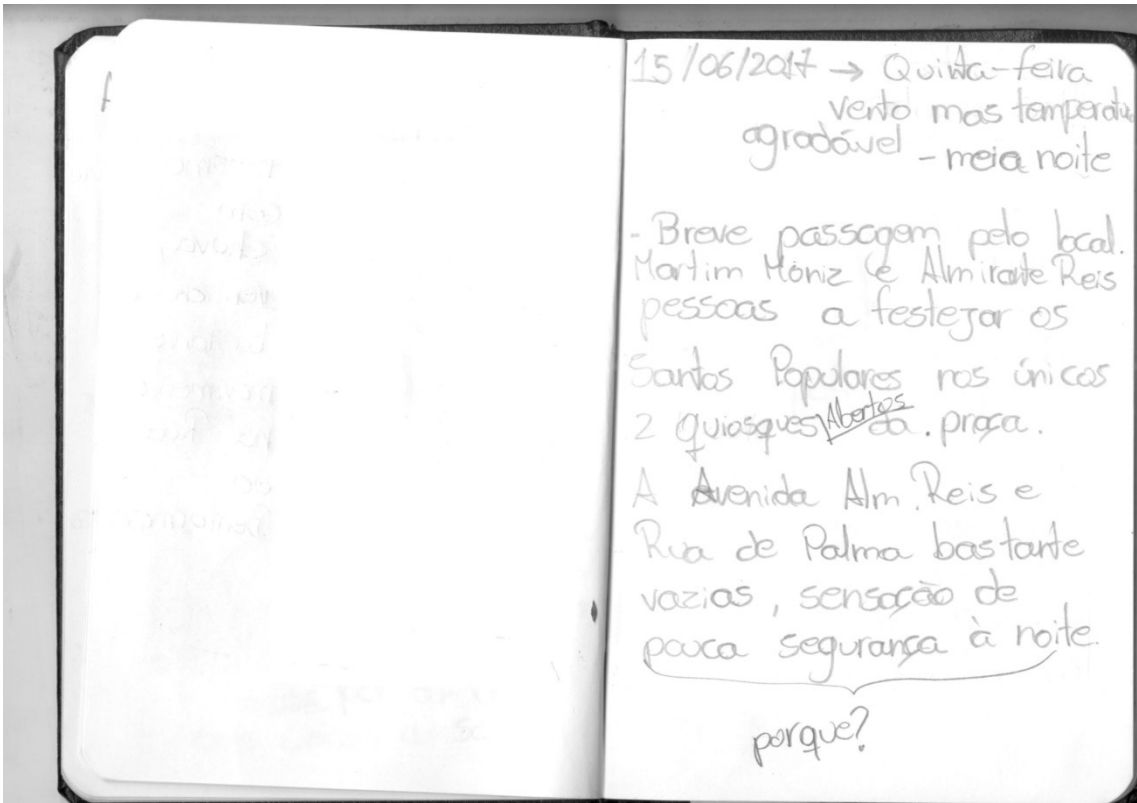 15/06/2017 → Quinta-feira
vento mas temperatu
agradável - meia noite
- Breve passagem pelo local.
Martim Moniz e Almirante Reis
pessoas a festejar os
Santos Populares nos únicos
2 quiosques Abertos da praça.
A Avenida Alm. Reis e
Rua de Palma bastante
vazias, sensação de
pouca segurança à noite.
porque?